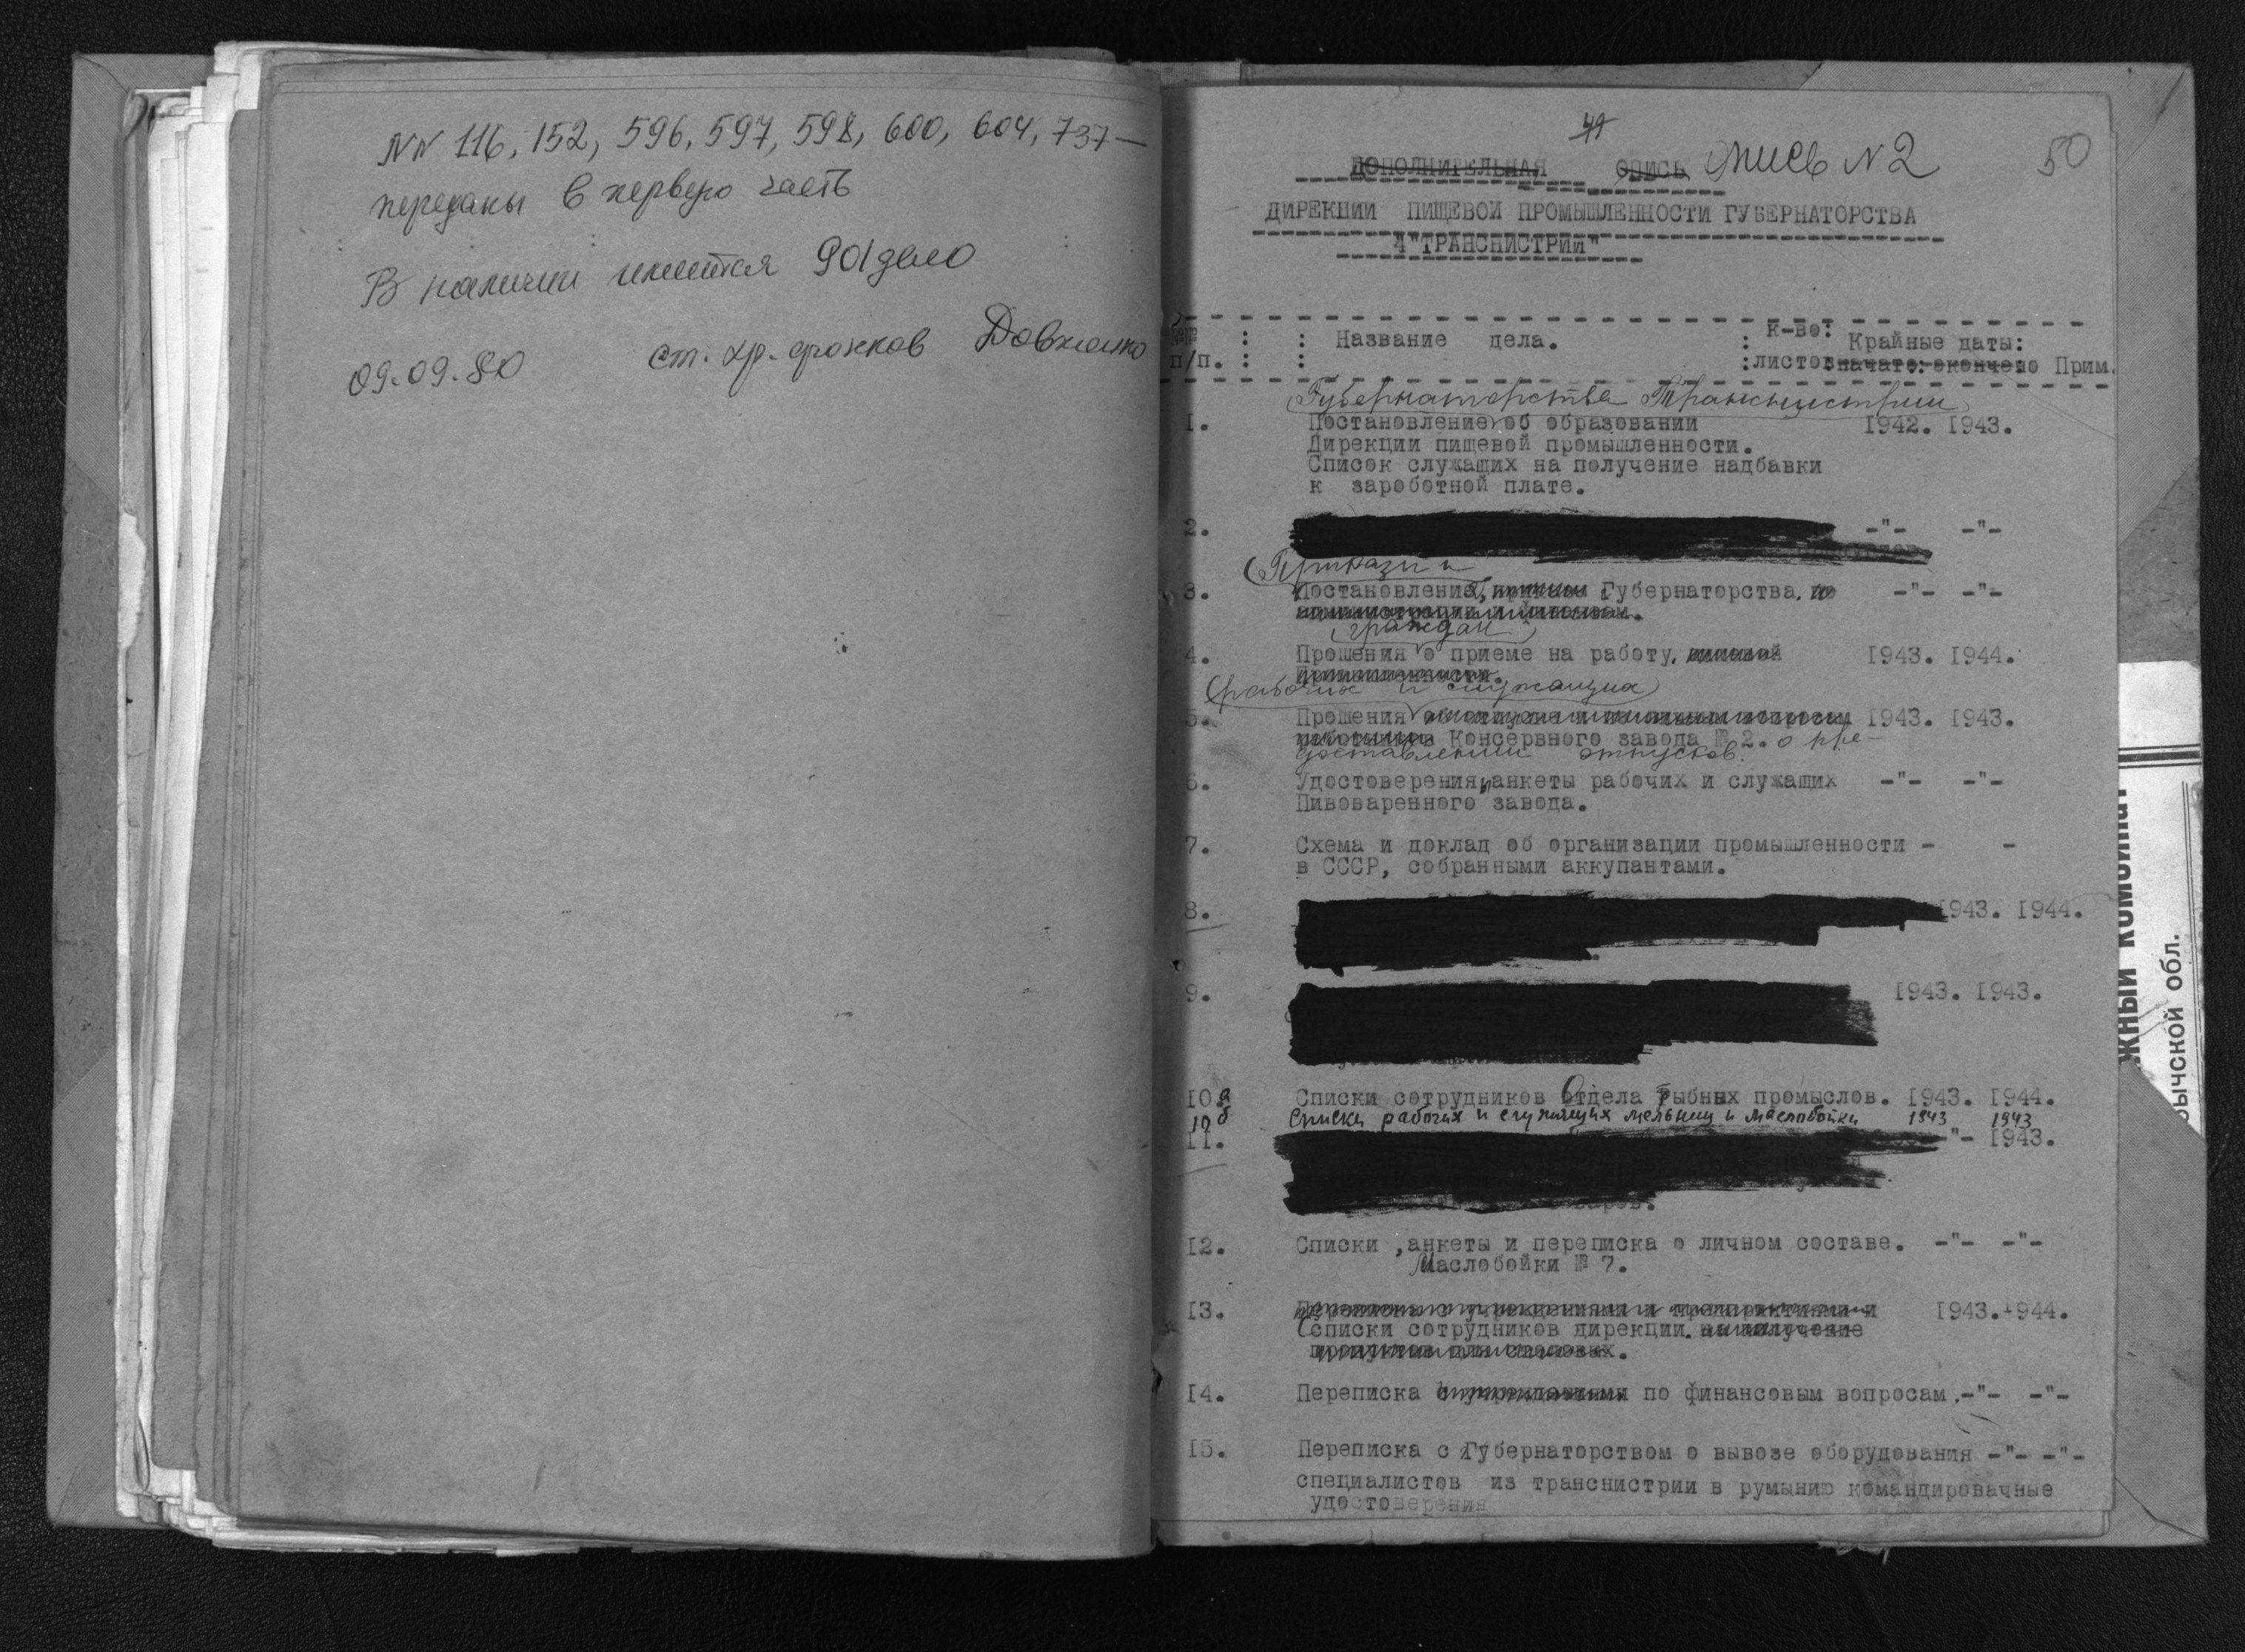 NN 116, 152, 596, 597, 598, 600, 604, 737 —
переданы в первую часть
В наличии имеится 901 дело
09.09.80 ст. хр. фондов Довженко
49
50
ДОПОЛНИТЕЛЬНАЯ ОПИСЬ Опись N 2
ДИРЕКЦИИ ПИЩЕВОЙ ПРОМЫШЛЕННОСТИ ГУБЕРНАТОРСТВА
"ТРАНСНИСТРИИ"
№№ : : Название дела. : К-во: Крайные даты:
п/п. : : :листов начато: окончено Прим.
Губернаторства Транснистрии
I. Постановление об образовании I942. I943.
Дирекции пищевой промышленности.
Список служащих на получение надбавки
к зароботной плате.
2. -"- -"-
Приказы и
3. Постановления, Губернаторства. -"- -"-
администрации и финансам.
граждан
4. Прошения о приеме на работу. I943. I944.
промышленности.
рабочих и служащих
5. Прошения I943. I943.
работников Консервного завода № 2. о пре-
доставлении отпусков.
6. Удостоверения, анкеты рабочих и служащих -"- -"-
Пивоваренного завода.
7. Схема и доклад об организации промышленности - -
в СССР, собранными аккупантами.
8. I943. I944.
9. I943. I943.
I0 а Списки сотрудников Отдела Рыбных промыслов. I943. I944.
10 б Списки рабочих и служащих мельниц и маслобойки 1943 1943
II. -"- I943.
I2. Списки ,анкеты и переписка о личном составе. -"- -"-
Маслобойки № 7.
I3. Переписка с учреждениями и предприятиями и I943.I944.
Списки сотрудников дирекции. на получение
продуктов для столовых.
I4. Переписка с учреждениями по финансовым вопросам.-"- -"-
I5. Переписка с Губернаторством о вывозе оборудования -"- -"-
специалистов из транснистрии в румынию командировачные
удостоверения
ЖНЫЙ КОМБИНАТ
бычской обл.